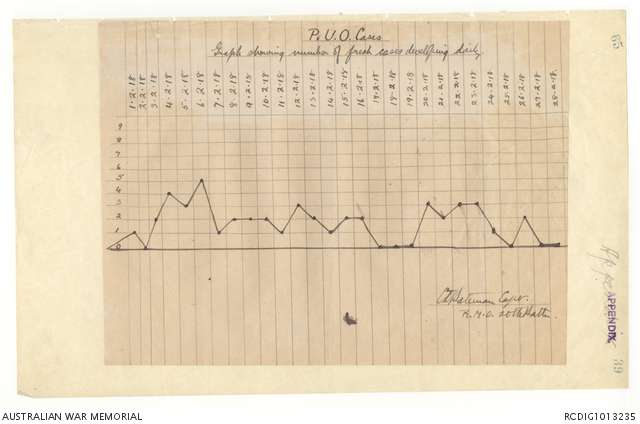 P.U.O. Cases
Graph showing number of fresh cases developing daily.
1.2.18
2.2.18
3.2.18
4.2.18
5.2.18
6.2.18
7.2.18
8.2.18
9.2.18
10.2.18
11.2.18
12.2.18
13.2.18
14.2.18
15.2.18
16.2.18
18.2.18
19.2.18
20.2.18
21.2.18
22.2.18
23.2.18
24.2.18
25.2.18
26.2.18
28.2.18
9
8
7
6
5
4
3
2
1
0
Capt.
R.M.O.
APPENDIX
39
AUSTRALIAN WAR MEMORIAL
RCDIG1013235